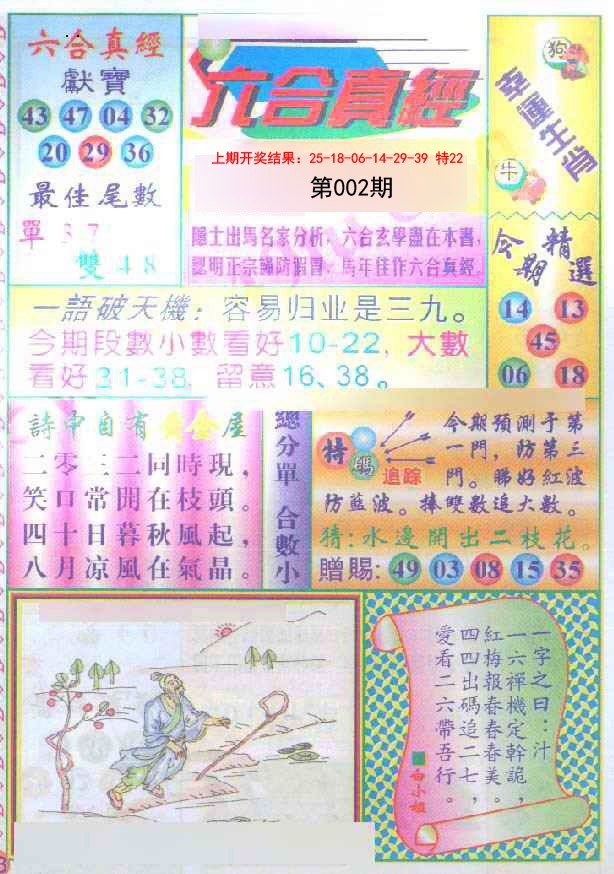 六合真經
獻寶
43 47 04 32
20 29 36
最佳尾數
單 3 7
雙 4 8
六合真經
上期开奖结果: 25-18-06-14-29-39 特22
第002期
隱士出馬名家分析，六合玄學盡在本書，
認明正宗謹防假冒，馬年佳作六合真經。
狗
幸運生肖
牛
今期精選
14 13
45
06 18
一語破天機：容易归业是三九。
今期段數小數看好10-22，大數
看好31-38，留意16、38。
詩中自有黃金屋
二零三二同時現，
笑口常開在枝頭。
四十日暮秋風起，
八月凉風在氣晶。
總分單 合數小
特
碼
追踪
今期預測于第
一門，防第三
門。睇好紅波
防藍波。捧雙數追大數。
猜:水邊開出二枝花。
贈賜: 49 03 08 15 35
一字之曰：汁
一六禪機定幹詭，
紅梅報春春春美。
四四出碼追二七，
愛看二六帶吾行。
白小姐